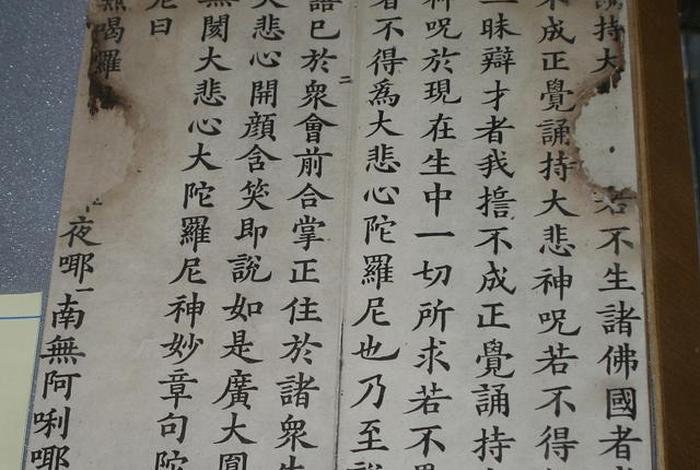 誦持大 若不生諸佛國者
不成正覺誦持大悲神呪若不得
一昧辯才者我誓不成正覺誦持
神呪於現在生中一切所求若不
者不得為大悲心陀羅尼也乃至
語巳於眾會前合掌正住於諸眾生
二
大悲心開顏含笑即說如是廣大圓
無閡大悲心大陀羅尼神妙章句陀
尼曰
無喝羅 夜㖿一南無阿唎㖿